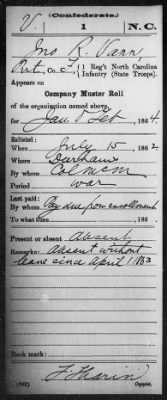 (Confederate.)
V. 1 N.C.
Jno R. Vann
Pvt, Co. I, 1 Reg't North Carolina
Infantry (State Troops).
Appears on
Company Muster Roll
of the organization named above,
for Jan & Feb, 1864
Enlisted:
When July 15, 1862
Where
By whom Col McM
Period war
Last paid:
By whom Pay due from enrollment
To what time , 186 .
Present or absent Absent
Remarks: Absent without
leave since April 1 1863
Book mark:
(862) Copyist.